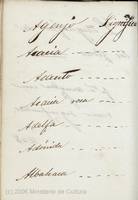 Agenjo
Acacia
Acanto
Acacia rosa
Adelfa
Adónida
Albahaca
(c) 2006 Ministerio de Cultura